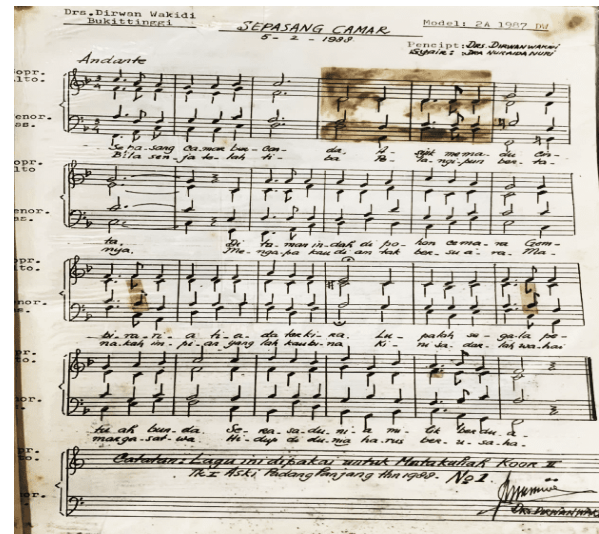 Drs.Dirwan Wakidi
Bukittinggi
SEPASANG CAMAR
5 - 2 - 1988
Model: 2A 1987 DW
Pencipt: DRS. DIRWAN WAKIDI
Syair: DRA NURAIDA NURI
Andante
Sopr.
Alto.
Tenor.
Bs.
Se pa-sang Ca-mar ber-can- da, A- syik mema- du Cin-
Bila sen-ja te-lah ti- ba Pe- la-ngi pun ber-ta-
opr.
lto
enor.
s.
ta. Di ta-man in-dah di po- hon cema-ra Gem-
nya. Me-nga-pa kau di am tak ber-su-a-ra Ma-
opr.
lto.
enor.
s.
bi-ra-ri- a ti-a- da terki-ra. Lu- palah se-ga-la pe-
na-kah im-pi-an yang lah kaubi-na Ki- ni sa-dar-lah wahai
opr.
lto.
nor.
s.
tu ah bun-da. Se-ra-sa du-ni-a mi- lik berdu-a-
marga-sat-wa Hi-dup di dunia ha-rus ber-u-sa-ha.
pr.
to.
Catatan: Lagu ini dipakai untuk Matakuliah Koor II
Tk I Aski Padang Panjang thn 1988. No 1
nor.
DRS. DIRWAN WAK